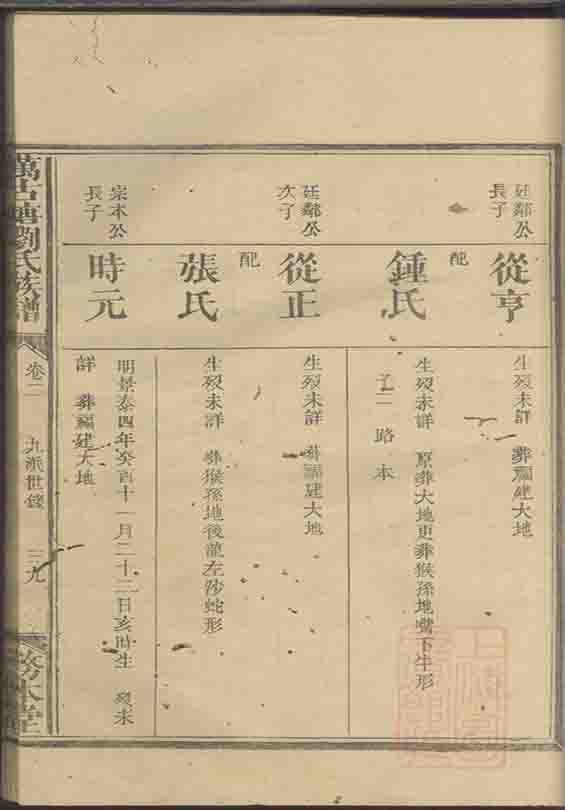 廷鄰公
長子
從亨
生歿未詳　葬福建大地
配
鍾氏
生歿未詳　原葬大地更葬猴孫地嘴下牛形
子二　路　本
廷鄰公
次子
從正
生歿未詳　葬福建大地
配
張氏
生歿未詳　葬猴孫地後龍左莎蛇形
宗本公
長子
時元
明景泰四年癸酉十一月二十二日亥時生　歿未
詳　葬福建大地
萬古塘劉氏族譜
卷二
九派世錄
三九
務本堂